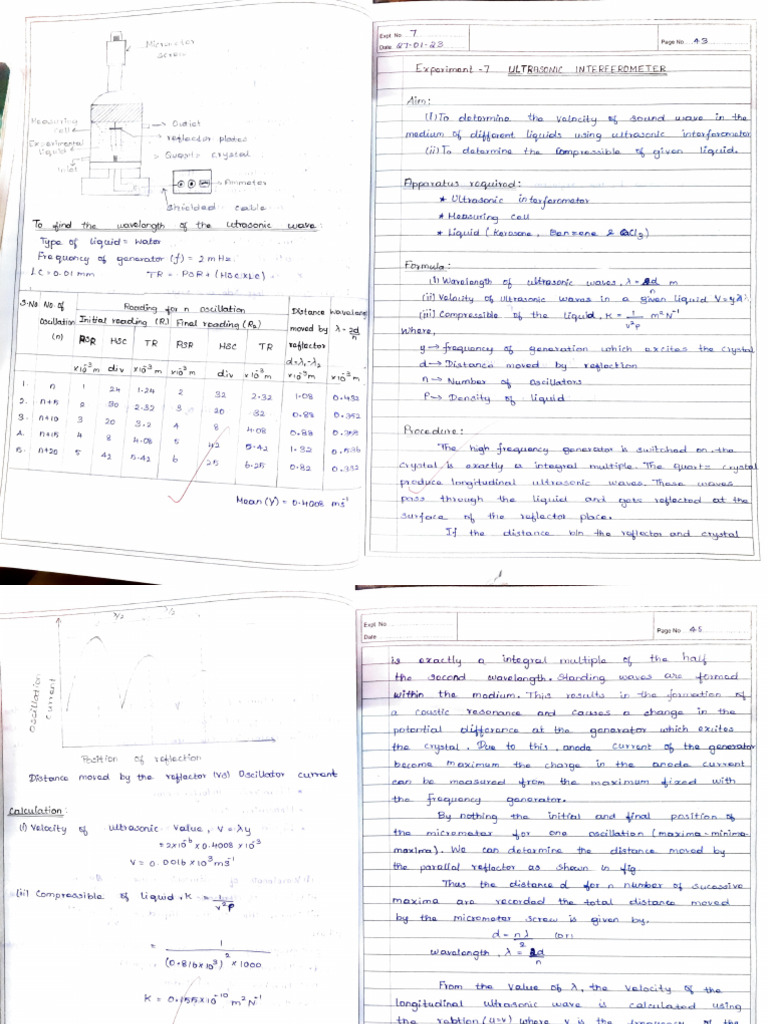 Micrometer
screw
Measuring
cell
Experimental
liquid
Inlet
Outlet
reflector plates
Quartz crystal
Ammeter
Shielded cable
To find the wavelength of the utrasonic wave:
Type of liquid = Water
Frequency of generator (f) = 2 mHz
L.C = 0.01 mm TR = PSR + (HSC x LC)
S.No No. of oscillation (n) Reading for n oscillation Distance moved by reflector d = λ1 - λ2 wavelength λ = 2d/n
Initial reading (R1) Final reading (R2)
PSR HSC TR PSR HSC TR
x10-3 m div x10-3 m x10-3 m div x10-3 m x10-3 m x10-3 m
1. n 1 24 1.24 2 32 2.32 1.08 0.432
2. n+5 2 30 2.32 3 20 .32 0.88 0.352
3. n+10 3 20 3.2 4 8 4.08 0.88 0.352
4. n+15 4 8 4.08 5 42 5.42 1.32 0.536
5. n+20 5 42 5.42 6 25 6.25 0.82 0.332
Mean (Y) = 0.4008 ms-1
Expt. No. 7
Date 27-01-23
Page No. 43
Experiment -7 ULTRASONIC INTERFEROMETER
Aim:
(i) To determine the velocity of sound wave in the
medium of different liquids using ultrasonic interferometor
(ii) To determine the compressible of given liquid.
Apparatus required:
* Ultrasonic interferometer
* Measuring cell
* Liquid (Kerosene, Benzene &
Formula:
(i) Wavelength of ultrasonic waves, λ = 2d/n m
(ii) Velocity of Ultrasonic waves in a given liquid V = yλ
(iii) Compressible of the liquid, K = 1/v²ρ m²N-1
where,
y → frequency of generation which excites the crystal
d → Distance moved by reflection
n → Number of oscillators
ρ → Density of liquid
Procedure:
The high frequency generator is switched on the
crystal is exactly a integral multiple. The quartz crystal
produce longitudinal ultrasonic waves. These waves
pass through the liquid and gets reflected at the
surface of the reflector place.
If the distance b/n the reflector and crystal
λ/2
Oscillation
current
Position of reflection
Distance moved by the reflector (vs) Oscillator current
Calculation:
(i) Velocity of ultrasonic value, V = λy
= 2x10-6 x 0.4008 x 10-3
V = 0.0016 x 10³ ms-1
(ii) Compressible of liquid, K = 1/v²ρ
= 1/(0.816x10³)² x 1000
K = 0.155x10-10 m²N-1
Expt. No.
Date
Page No. 45
is exactly a integral multiple of the half
the second wavelength. Standing waves are formed
within the medium. This results in the formation of
a coustic resonance and causes a change in the
potential difference at the generator which excites
the crystal. Due to this, anode current of the generator
become maximum the charge in the anode current
can be measured from the maximum fixed with
the frequency generator.
By nothing the initial and final position of
the micrometer for one oscillation (maxima-minima-
maxima). We can determine the distance moved by
the parallel reflector as shown in fig.
Thus the distance d for n number of sucessive
maxima are recorded the total distance moved
by the micrometer screw is given by.
d = nλ/2 (or)
wavelength, λ = 2d/n
From the value of λ, the velocity of the
longitudinal ultrasonic wave is calculated using
the relation (u=v) where v is the frequency of the